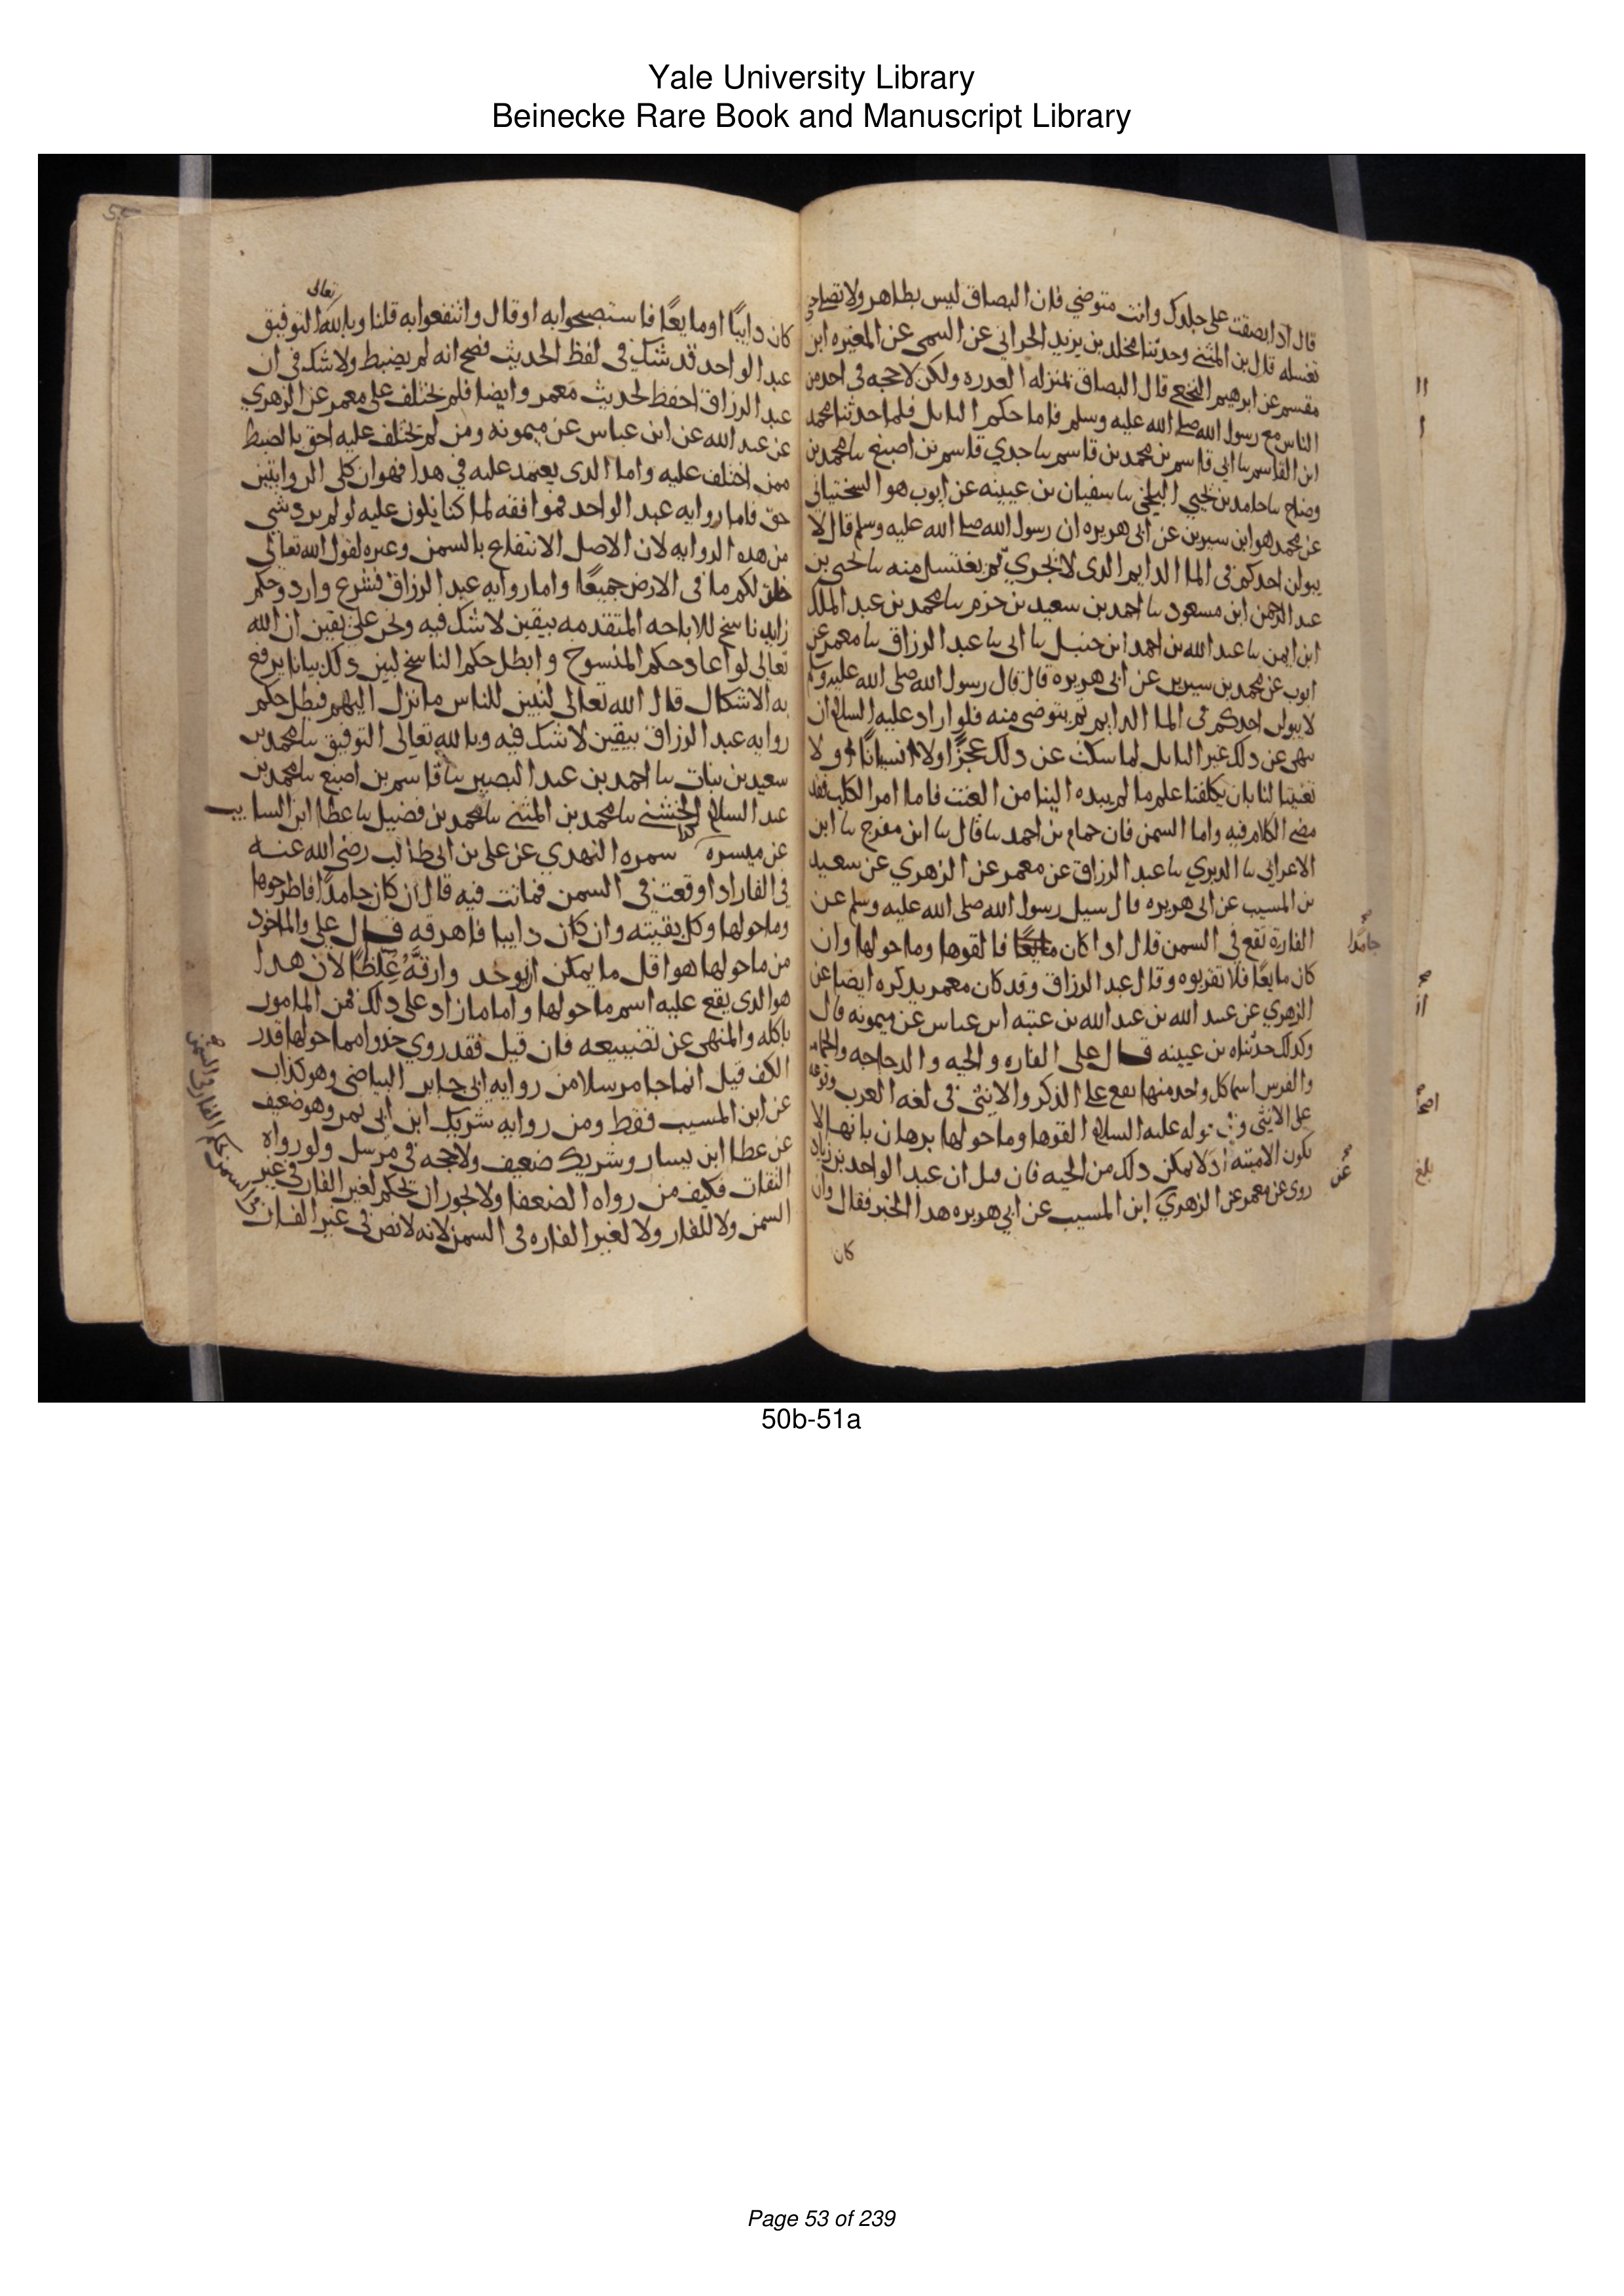 Yale University Library
Beinecke Rare Book and Manuscript Library
قال اذا بصقت على جلدك وانت متوضي فان البصاق ليس بطاهر ولا تصلي حتى
تغسله قال بن المثنى وحدثنا مخلد بن يزيد الحراني عن التيمي عن المغيره ابن
مقسم عن ابرهيم النخعي قال البصاق بمنزله العدره ولكن لا حجه في احد من
الناس مع رسول الله صلى الله عليه وسلم فاما حكم البايل فلما حدثنا محمد
ابن القاسم سا ابي قاسم بن محمد بن قاسم سا جدي قاسم بن اصبغ سا محمد بن
وضاح سا حامد بن يحيي البلخي سا سفيان بن عيينه عن ايوب هو السختياني
عن محمد هو ابن سيرين عن ابي هريره ان رسول الله صلى الله عليه وسلم قال لا
يبولن احدكم في الما الدايم الدى لا يجري ثم يغتسل منه سا يحيى بن
عبد الرحمن ابن مسعود سا احمد بن سعيد بن حزم سا محمد بن عبد الملك
ابن ايمن سا عبد الله بن احمد ابن حنبل سا ابي سا عبد الرزاق سا معمر عن
ايوب عن محمد بن سيرين عن ابي هريره قال قال رسول الله صلى الله عليه وسلم
لا يبولن احدكم في الما الدايم ثم يتوضى منه فلو اراد عليه السلام ان
ينهى عن دلك غير البايل لما سكت عن دلك عجزًا ولا نسيانًا ولا
تعنيتا لنا بان يكلفنا علم ما لم يبده الينا من الغيب فاما امر الكلب فقد
مضى الكلام فيه واما السمن فان حمام بن احمد سا قال سا ابن مفرج سا ابن
الاعرابي سا الدبري سا عبد الرزاق عن معمر عن الزهري عن سعيد
بن المسيب عن ابي هريره قال سيل رسول الله صلى الله عليه وسلم عن
الفارة تقع في السمن قال ادا كان مايعًا فالقوها وما حولها وان
جامدًا
كان مايعًا فلا تقربوه وقال عبد الرزاق وقد كان معمر يدكره ايضا عن
الزهري عن عبيد الله بن عبد الله بن عتبه ابن عباس عن ميمونه قال
وكدلك حدثناه بن عيينه قال على الفاره والحيه والدجاجه والحمامه
والفرس اسما كل واحد منها يقع على الذكر والانثى في لغه العرب وقوعا
على الانثى وفي قوله عليه السلام القوها وما حولها برهان بانها لا
تكون الا ميته اد لا يمكن دلك من الحيه فان قيل ان عبد الواحد بن زياد
روى عن معمر عن الزهري ابن المسيب عن ابي هريره هدا الخبر فقال وان
عن
بلغ
كان
كان دايبًا او مايعًا فاستصبحوا به او قال وانتفعوا به قلنا وبالله تعالى التوفيق
عبد الواحد قد شك في لفظ الحديث فصح انه لم يضبط ولا شك في ان
عبد الرزاق احفظ لحديث معمر وايضا فلم يختلف على معمر عن الزهري
عن عبد الله عن ابن عباس عن ميمونه ومن لم يختلف عليه احق بالضبط
ممن اختلف عليه واما الدى يعتمد عليه في هدا فهو ان كلى الروايتين
حق فاما روايه عبد الواحد فموافقه لما كنا نكون عليه لو لم يرد شي
من هده الروايه لان الاصل الانتفاع بالسمن وغيره لقول الله تعالى
خلق لكم ما في الارض جميعًا واما روايه عبد الرزاق فشرع وارد وحكم
زايد ناسخ للاباحه المتقدمه بيقين لا شك فيه ونحن على يقين ان الله
تعالى لو اعاد حكم المنسوخ وابطل حكم الناسخ لبين دلك بيانا يرفع
به الاشكال قال الله تعالى لتبين للناس ما نزل اليهم فبطل حكم
روايه عبد الرزاق بيقين لا شك فيه وبالله تعالى التوفيق سا محمد بن
سعيد بن نبات سا احمد بن عبد البصير سا قاسم بن اصبغ سا محمد بن
عبد السلام الخشني سا محمد بن المثنى سا محمد بن فضيل سا عطا ابن السايب
عن ميسره كدا سمره النهدي عن على بن ابي طالب رضي الله عنه
في الفار ادا وقعت في السمن فماتت فيه قال ان كان جامدًا فاطرحوها
وما حولها وكل بقيته وان كان دايبا فاهرقه قال على والماخود
من ما حولها هو اقل ما يمكن ان يوخد وارقَّهُ غِلَظًا لان هدا
هو الدى يقع عليه اسم ما حولها واما ما زاد على دلك فمن المامور
باكله والمنهى عن تضييعه فان قيل فقد روي خذوا مما حولها قدر
الكف قيل انما جا مرسلا من روايه ابي جابر البياضي وهو كذاب
عن ابن المسيب فقط ومن روايه شريك ابن ابي نمر وهو ضعيف
عن عطا ابن يسار وشريك ضعيف ولا حجه في مرسل ولو رواه
الثقات فكيف من رواه الضعفا ولا يجوز ان يحكم لغير الفار في غير
السمن ولا للفار ولا لغير الفاره في السمن لانه لا نص في غير الفار
50b-51a
Page 53 of 239